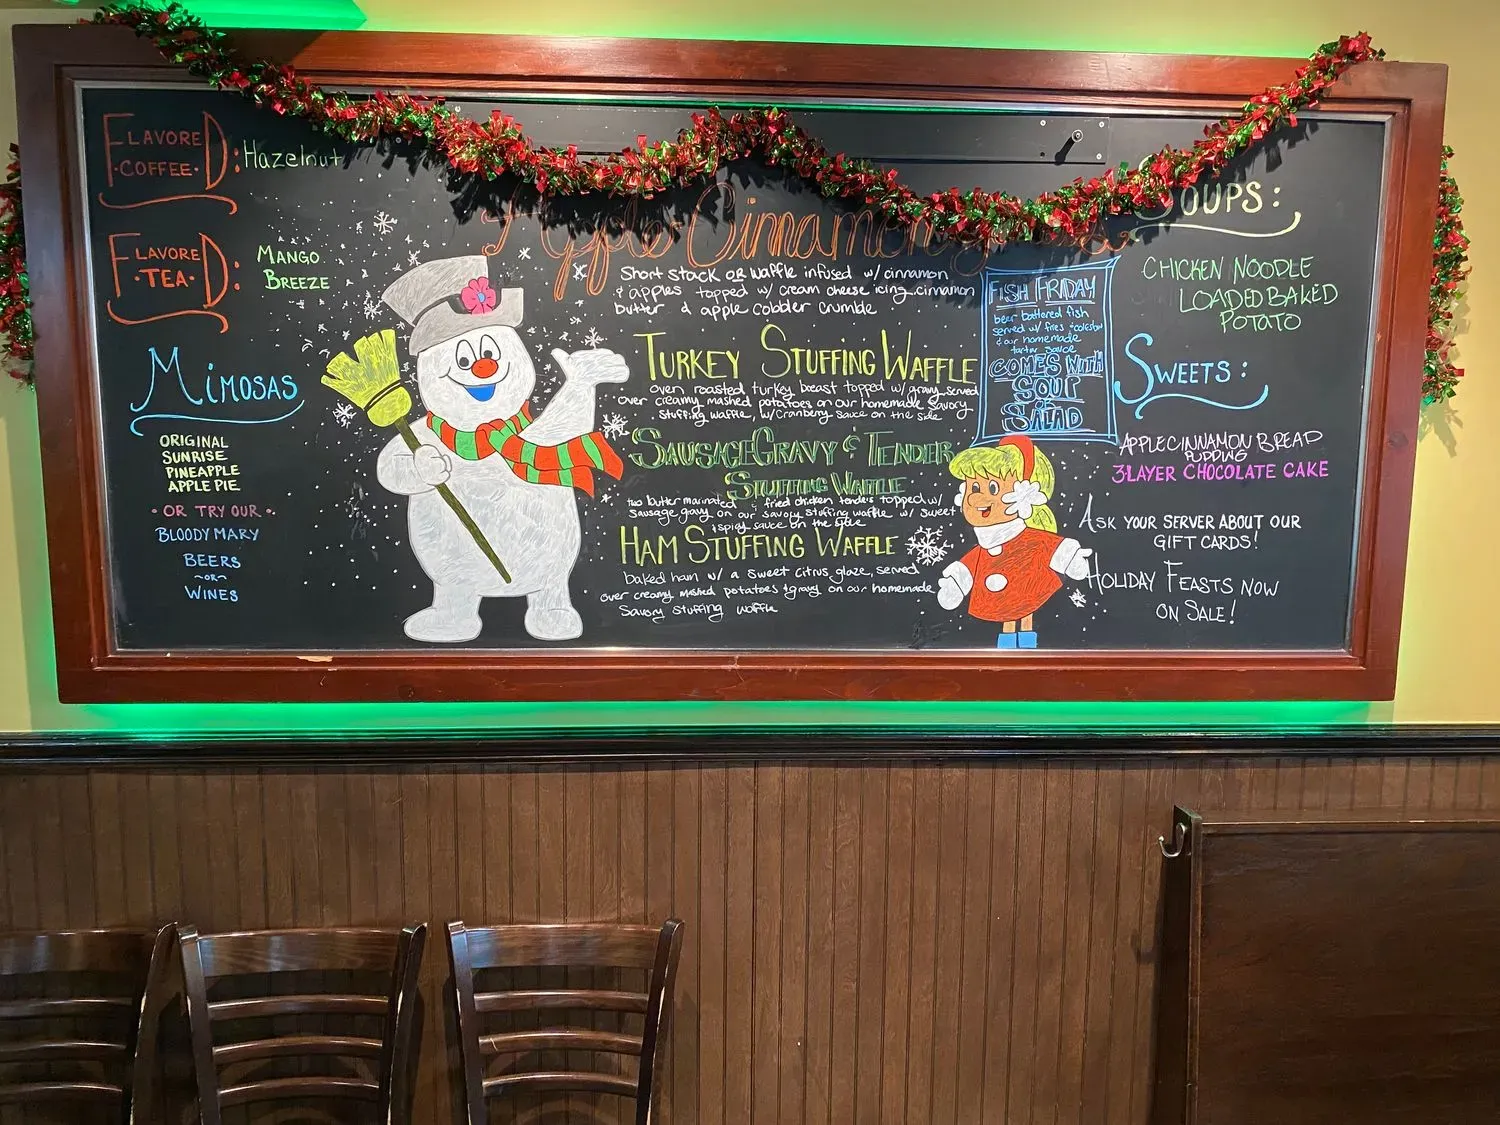 FLAVORED
COFFEE: Hazelnut
FLAVORED
TEA: MANGO
BREEZE
MIMOSAS
ORIGINAL
SUNRISE
PINEAPPLE
APPLE PIE
• OR TRY OUR •
BLOODY MARY
BEERS
~OR~
WINES
Apple Cinnamon
Short stack OR waffle infused w/ cinnamon
& apples topped w/ cream cheese icing, cinnamon
butter & apple cobbler crumble
TURKEY STUFFING WAFFLE
oven roasted turkey breast topped w/ gravy, served
over creamy mashed potatoes on our homemade savory
stuffing waffle, w/ Cranberry sauce on the side
SAUSAGE GRAVY & TENDER
STUFFING WAFFLE
two butter marinated & fried chicken tenders topped w/
sausage gravy on our savory stuffing waffle w/ sweet
& spicy sauce on the side
HAM STUFFING WAFFLE
baked ham w/ a sweet citrus glaze, served
over creamy mashed potatoes & gravy on our homemade
Savory stuffing waffle
FISH FRIDAY
beer battered fish
served w/ fries & coleslaw
& our homemade
tartar sauce
COMES WITH
SOUP
OR
SALAD
SOUPS:
CHICKEN NOODLE
LOADED BAKED
POTATO
SWEETS:
APPLE CINNAMON BREAD
PUDDING
3-LAYER CHOCOLATE CAKE
ASK YOUR SERVER ABOUT OUR
GIFT CARDS!
HOLIDAY FEASTS NOW
ON SALE!